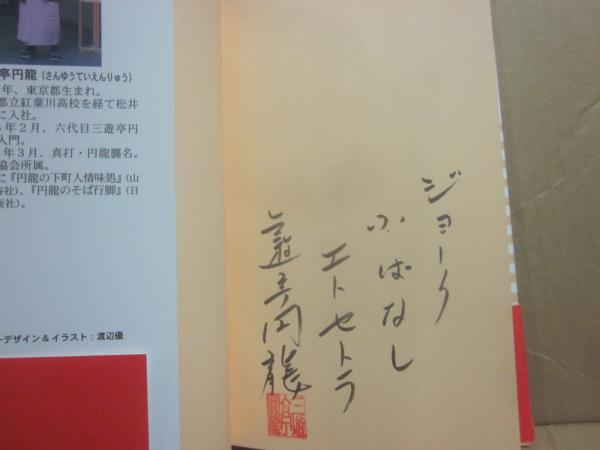 亭円龍(さんゆうていえんりゅう)
年、東京都生まれ。
都立紅葉川高校を経て松井
に入社。
年2月、六代目三遊亭円
入門。
年3月、真打・円龍襲名。
協会所属。
に『円龍の下町人情味処』(山
谷社)、『円龍のそば行脚』(日
版社)。
デザイン&イラスト:渡辺優
ジョーク
小ばなし
エトセトラ
三遊亭円龍